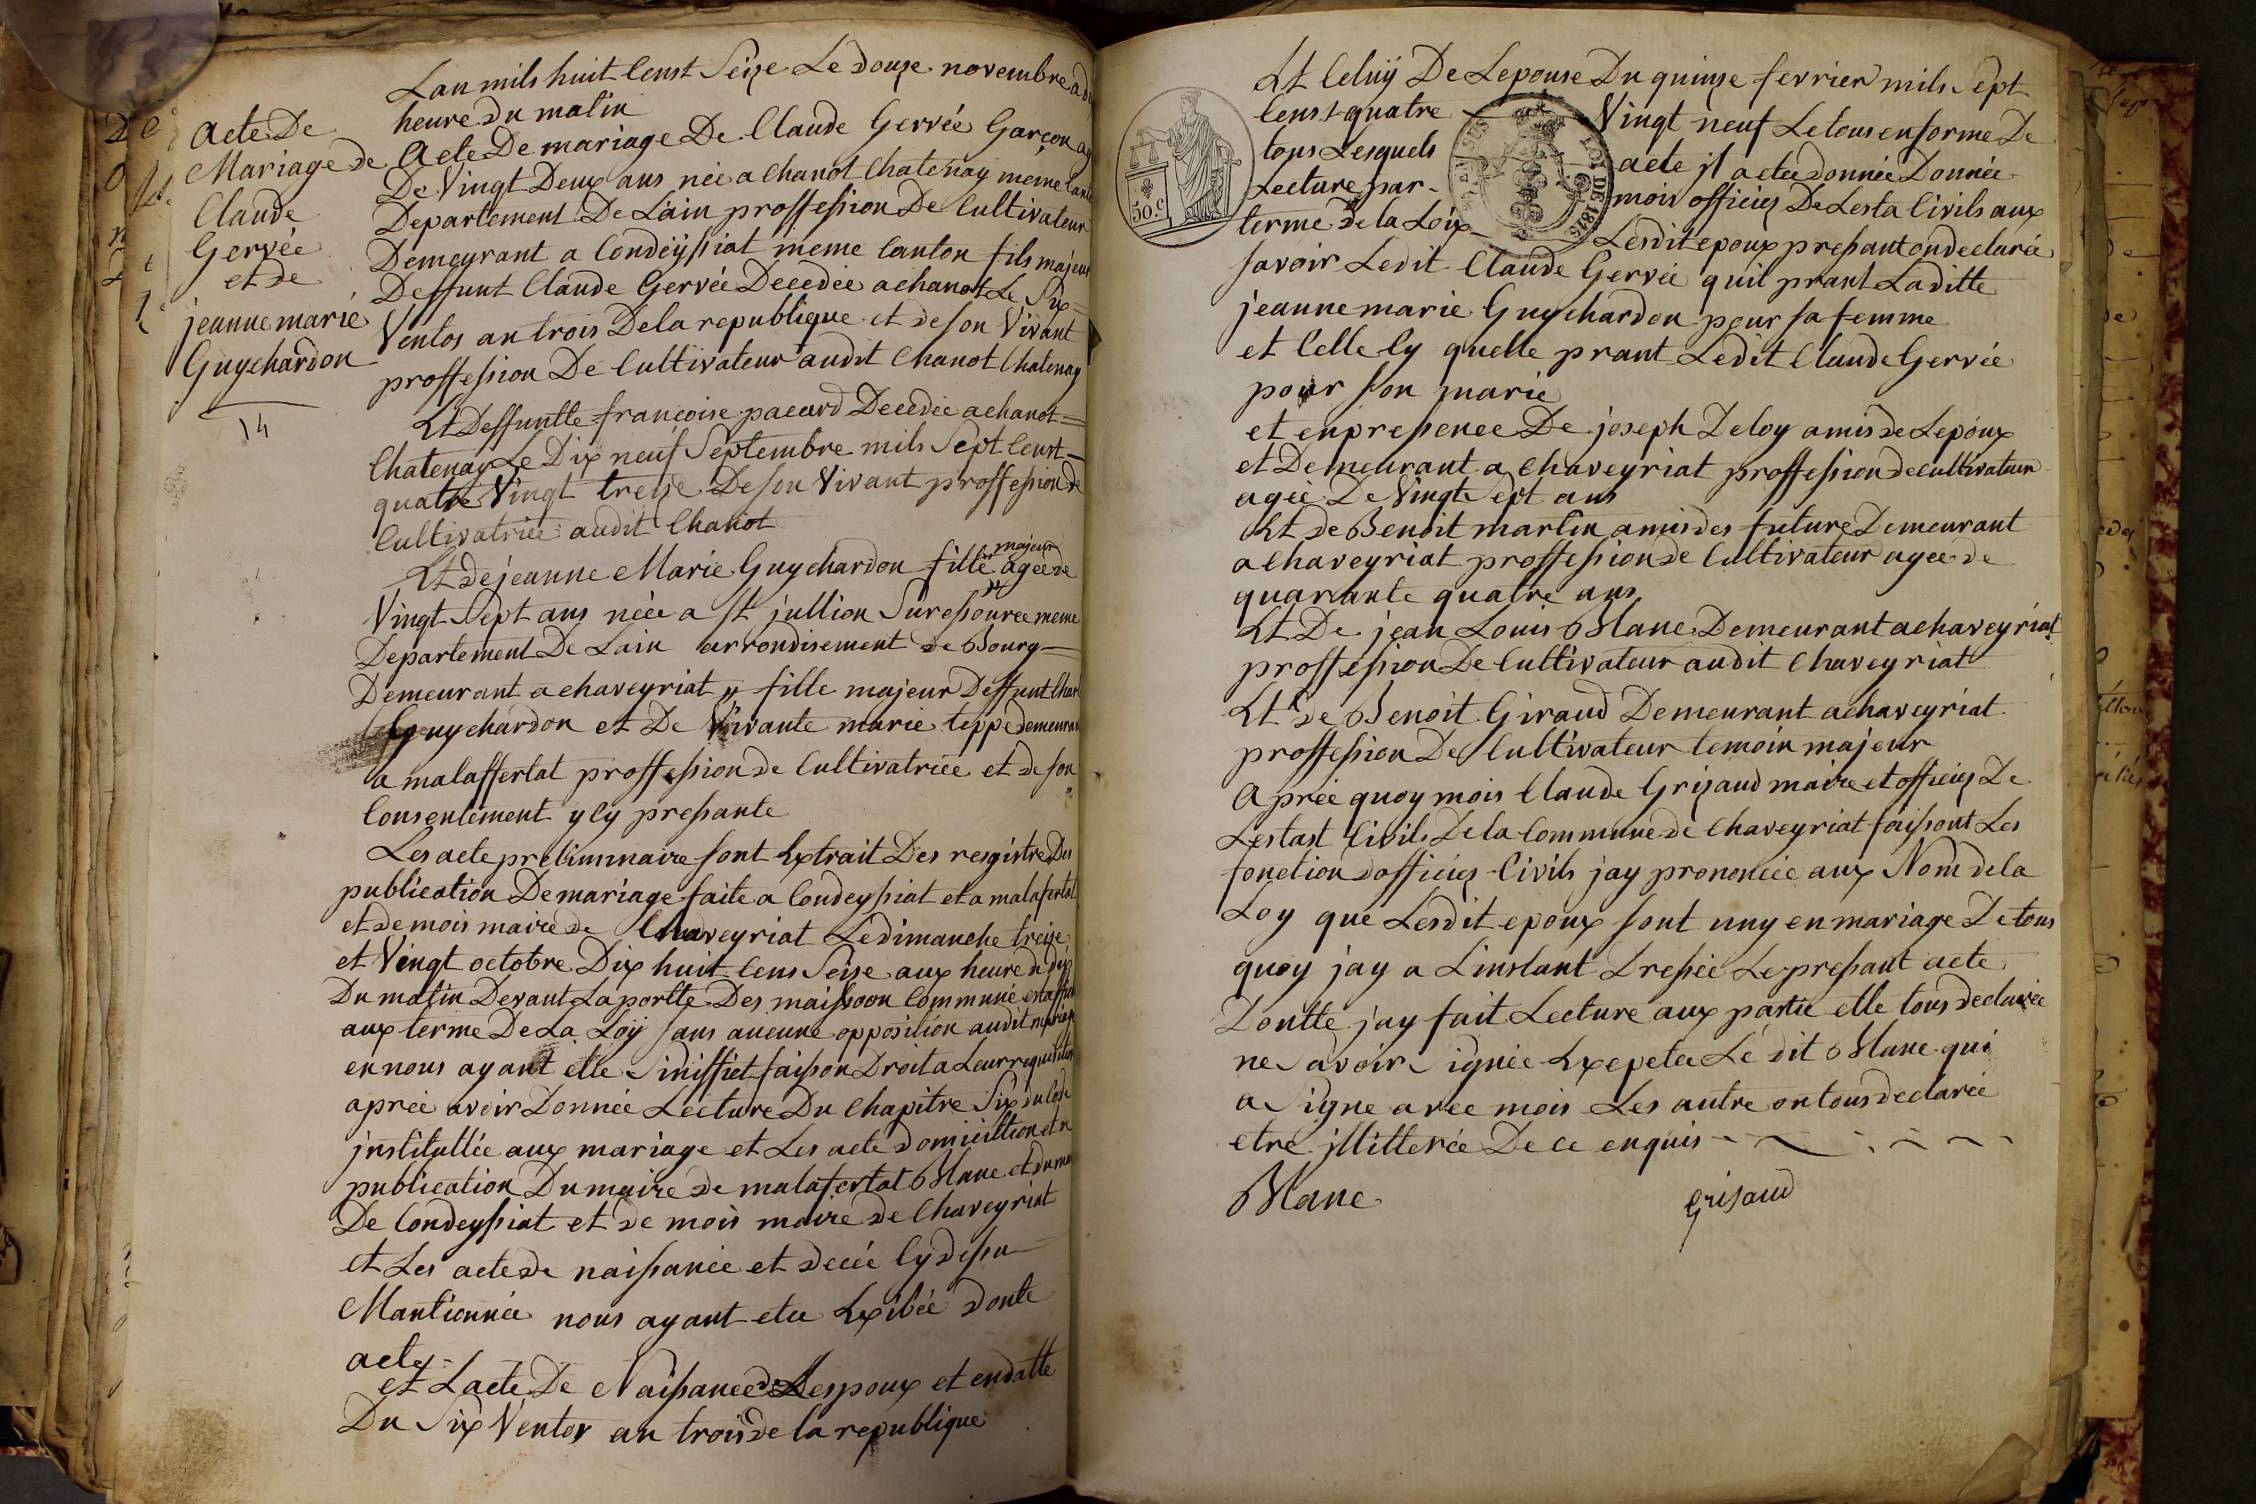 acte De
Mariage de
Claude
Gervée
et de
jeanne marie
Guychardon
14
Lan mils huit Censt Seize Le douze novembre a
heure du matin
Acte De mariage De Claude Gervée Garçon
De Vingt Deux ans née a Chanot Chatenay meme
Departement De Lain proffession De Cultivateur
Demeyrant a Condeyssiat meme Canton fils majeur
Deffunt Claude Gervée Decedée a chanot Le Six
Ventos an trois De la republique et de son Vivant
proffession De Cultivateur audit Chanot Chatenay
Et Deffuntte francoise pacard Decedée a chanot
Chatenay Le Dix neuf Septembre mils Sept Censt
quatre Vingt treize De son Vivant proffession de
Cultivatriée audit Chanot
Et de jeanne Marie Guychardon fille majeur agée de
Vingt Sept ans néée a St jullion Suressouree meme
Departement De Lain arrondisement de Bourg
Demeurant a chaveyriat fille majeur Deffunt
Guychardon et De Vivante marie teppe demeurant
a malaffertat proffession de Cultivatriée et de son
Consentement y Cy pressante
Les acte preliminaire sont Extrait Des resgistre Des
publication De mariage faite a Condeyssiat et a malafertat
et de mois maire de Chaveyriat Le dimanche treize
et Vingt octobre Dix huit Cens Seize aux heure de dix
Du matin Devant La portte Des maissoon Commune
aux terme De La Loÿ sans aucune opposition audit mariage
en nous ayant elle Siniffiet faisson Droit a Leur
aprée avoir Donnée Lecture Du Chapitre Six du Code
jnstitullée aux mariage et Les acte
publication Du maire de malafertat Blanc et du
De Condeyssiat et de mois maire de Chaveyriat
et Les acte de naissancée et decée Cy dessu
Mantionnée nous ayant etée Exibée donte
acte
et Lacte De Naissancee de Lespoux et en datte
Du Six Ventos an trois de la republique
Et Celuÿ De Lepouse Du quinse fevrier mils Sept
Cens quatre Vingt neuf Le tous en forme De
tous Lesquels acte jl a etée donnée Donnée
Lecture par mois officiez De Lesta Civils aux
terme de la Loix Lesdit epoux pressant on declarée
savoir Ledit Claude Gervée quil prant Laditte
jeanne marie Guychardon pour sa femme
et Celle Cy quelle prant Ledit Claude Gervée
pour son marie
et en pressence De joseph Deloy amis de Lepoux
et Demeurant a Chaveyriat proffession de cultivateur
agée De Vingt Sept ans
Et de Benoit martin amis des future Demeurant
a Chaveyriat proffession de Cultivateur agee de
quarante quatre ans
Et De jean Louis Blanc Demeurant a chaveyriat
proffession De Cultivateur audit Chaveyriat
Et de Benoit Giraud Demeurant a chaveyriat
proffession De Cultivateur temoin majeur
Aprée quoy mois Claude Grizaud maire et officiez De
Lestast Civils De la Commune de Chaveyriat faissont Les
fonction dofficiez Civils jay prononcée aux Nom de la
Loy que Lesdit epoux sont uny en mariage De tous
quoy jay a Linstant Dressée Le pressant acte
Dontte jay fait Lecture aux partie elle tous declarée
ne Savoir Signée Exepetee Le dit Blanc qui
a Signe avec mois Les autre on tous declarée
etre jllitterée De ce enquis
Blanc
Grisaud
50.C
LOI DE 1816